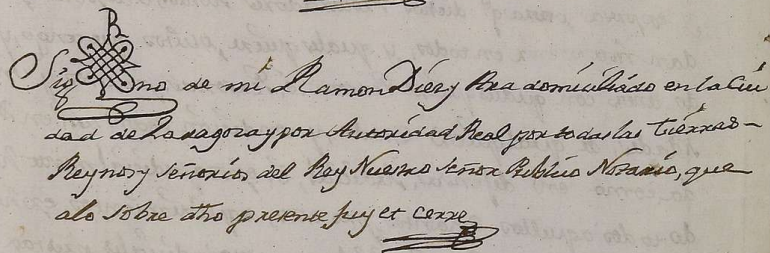 Sig no de mi Ramon Diez y Bra domiciliado en la Ciu
dad de Zaragoza y por Autoridad Real por todas las tierras
Reynos y señorios del Rey Nuestro señor Publico Notario, que
alo sobre dho presente fuy et cerre